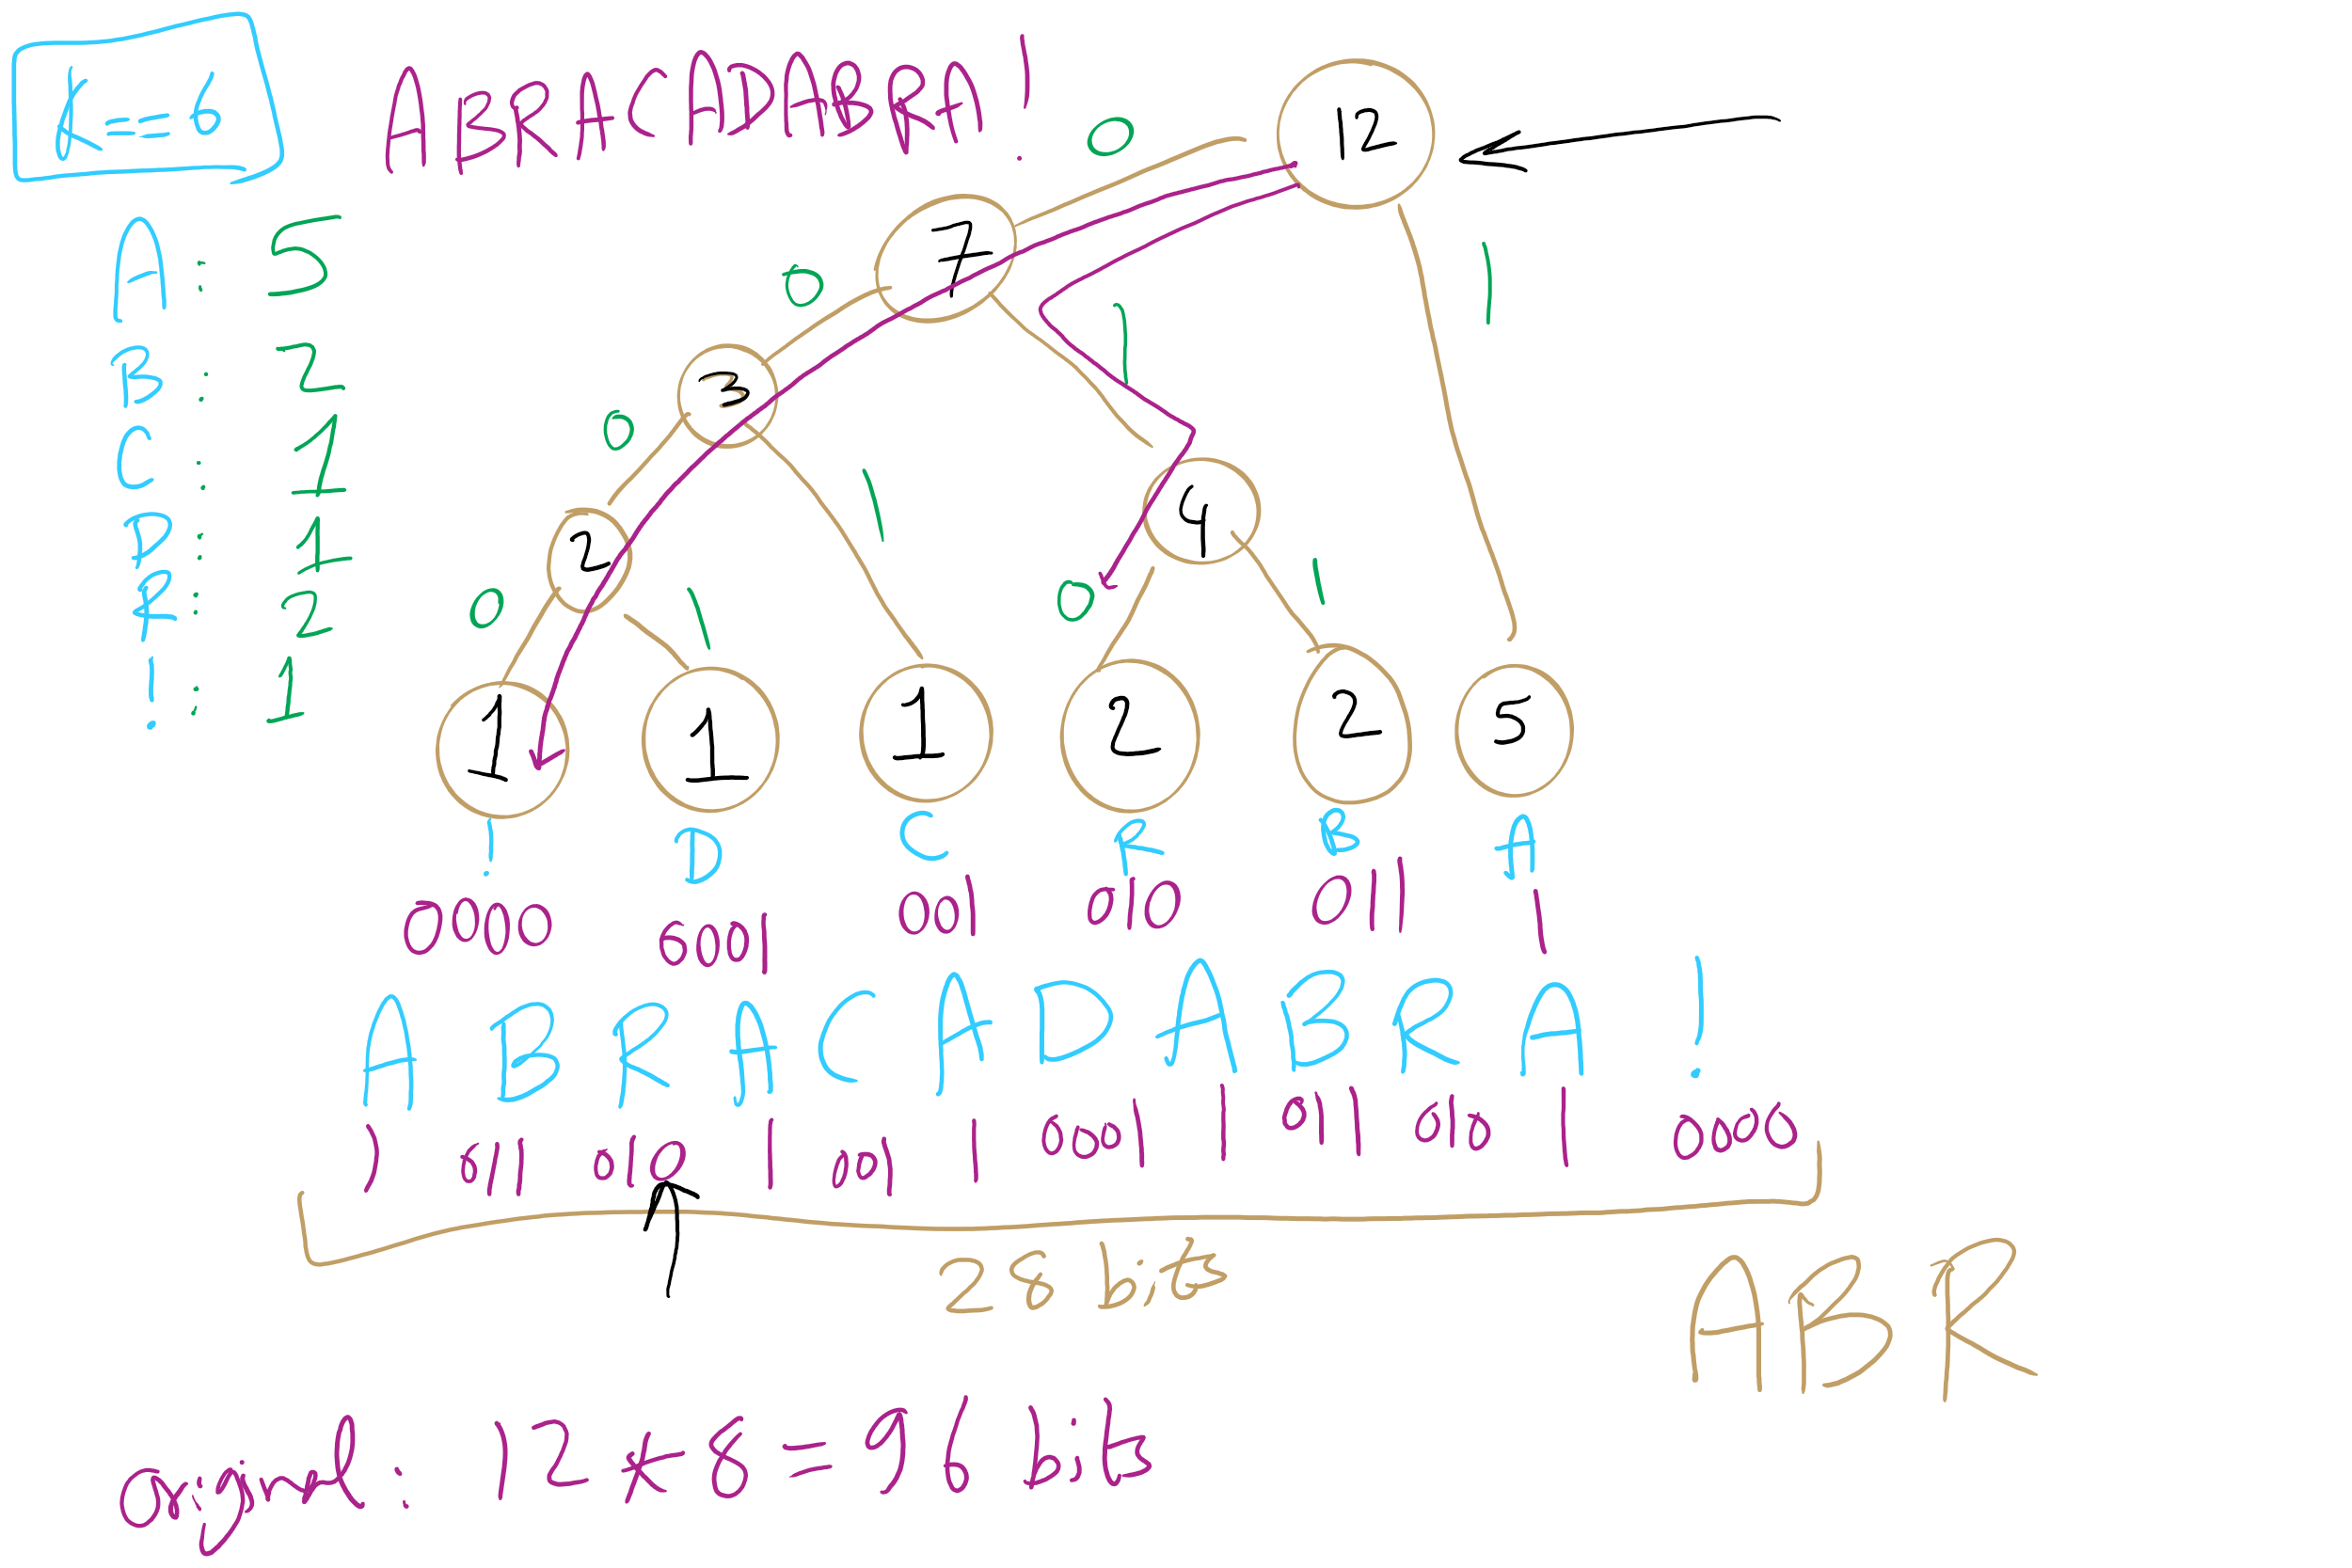 K == 6
ABRACADABRA!
A : 5
B : 2
C : 1
D : 1
R : 2
! : 1
12
0
7
1
0
1
3
4
0
1
2
0
1
0
1
1 1 1 2 2 5
! D C R B A
0000 0001 001 010 011 1
A B R A C A D A B R A !
1 011 010 1 001 1 0001 1 011 010 1 0000
28 bits
ABR
original: 12 * 8 = 96 bits